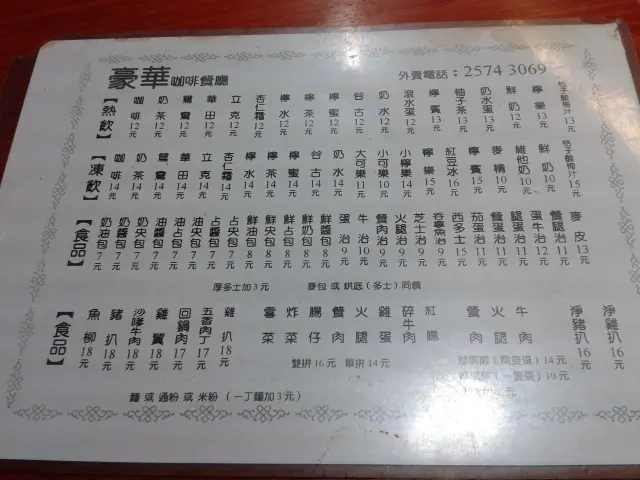 豪華咖啡餐廳 外賣電話：2574 3069
【熱飲】 咖啡12元 奶茶12元 鴛鴦12元 華田12元 立克12元 杏仁霜12元 檸水12元 檸茶12元 檸蜜12元 谷古12元 奶水12元 滾水蛋12元 檸賓13元 柚子茶13元 奶水蛋13元 鮮奶12元 檸樂13元 桔子酸梅汁13元
【凍飲】 咖啡14元 奶茶14元 鴛鴦14元 華田14元 立克14元 杏仁霜14元 檸水14元 檸茶14元 檸蜜14元 谷古14元 奶水14元 大可樂11元 小可樂10元 小檸樂14元 檸樂15元 紅豆冰16元 檸賓15元 麥精10元 維他奶10元 鮮奶10元 桔子酸梅汁15元
【食品】 奶油包7元 奶醬包7元 奶央包7元 油醬包7元 油占包7元 油央包7元 占醬包7元 占央包7元 鮮油包8元 鮮央包8元 鮮占包8元 鮮奶包8元 鮮醬包8元 蛋治9元 牛治10元 餐肉治9元 火腿治9元 芝士治9元 吞拿魚治9元 西多士15元 茄蛋治11元 餐蛋治11元 腿蛋治11元 蛋牛治12元 餐腿治11元 麥皮13元
厚多士加3元 麥包 或 烘底（多士）同價
【食品】 魚柳18元 豬扒18元 沙嗲牛肉18元 雞翼18元 回鍋肉17元 五香肉丁17元 雞扒18元 雪菜 炸菜 腸仔 餐肉 火腿 雞蛋 碎牛肉 紅腸 餐肉 火腿 牛肉 淨豬扒16元 淨雞扒16元
雙拼16元 單拼14元
14元
（一隻蛋）10元
麵 或 通粉 或 米粉 （一丁麵加3元）